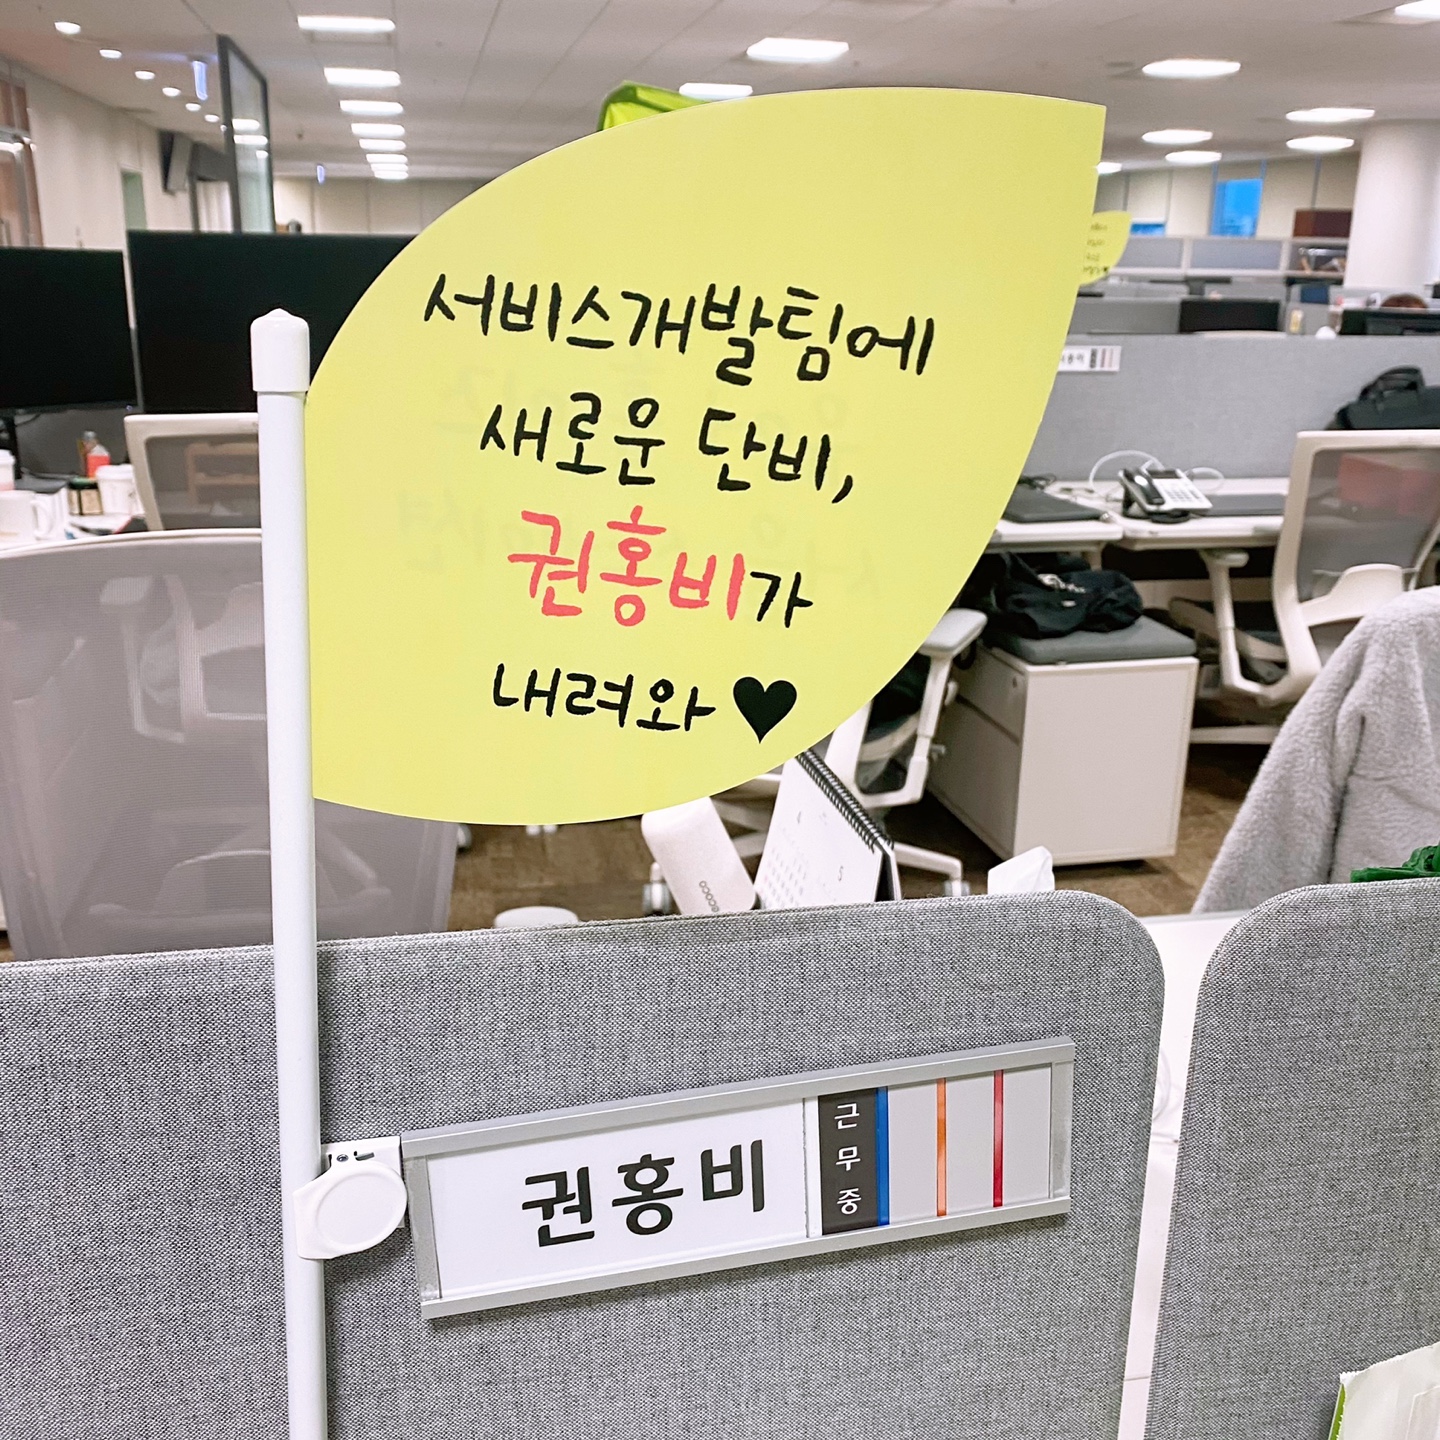 서비스개발팀에
새로운 단비,
권홍비가
내려와 ♥
권홍비
근무중